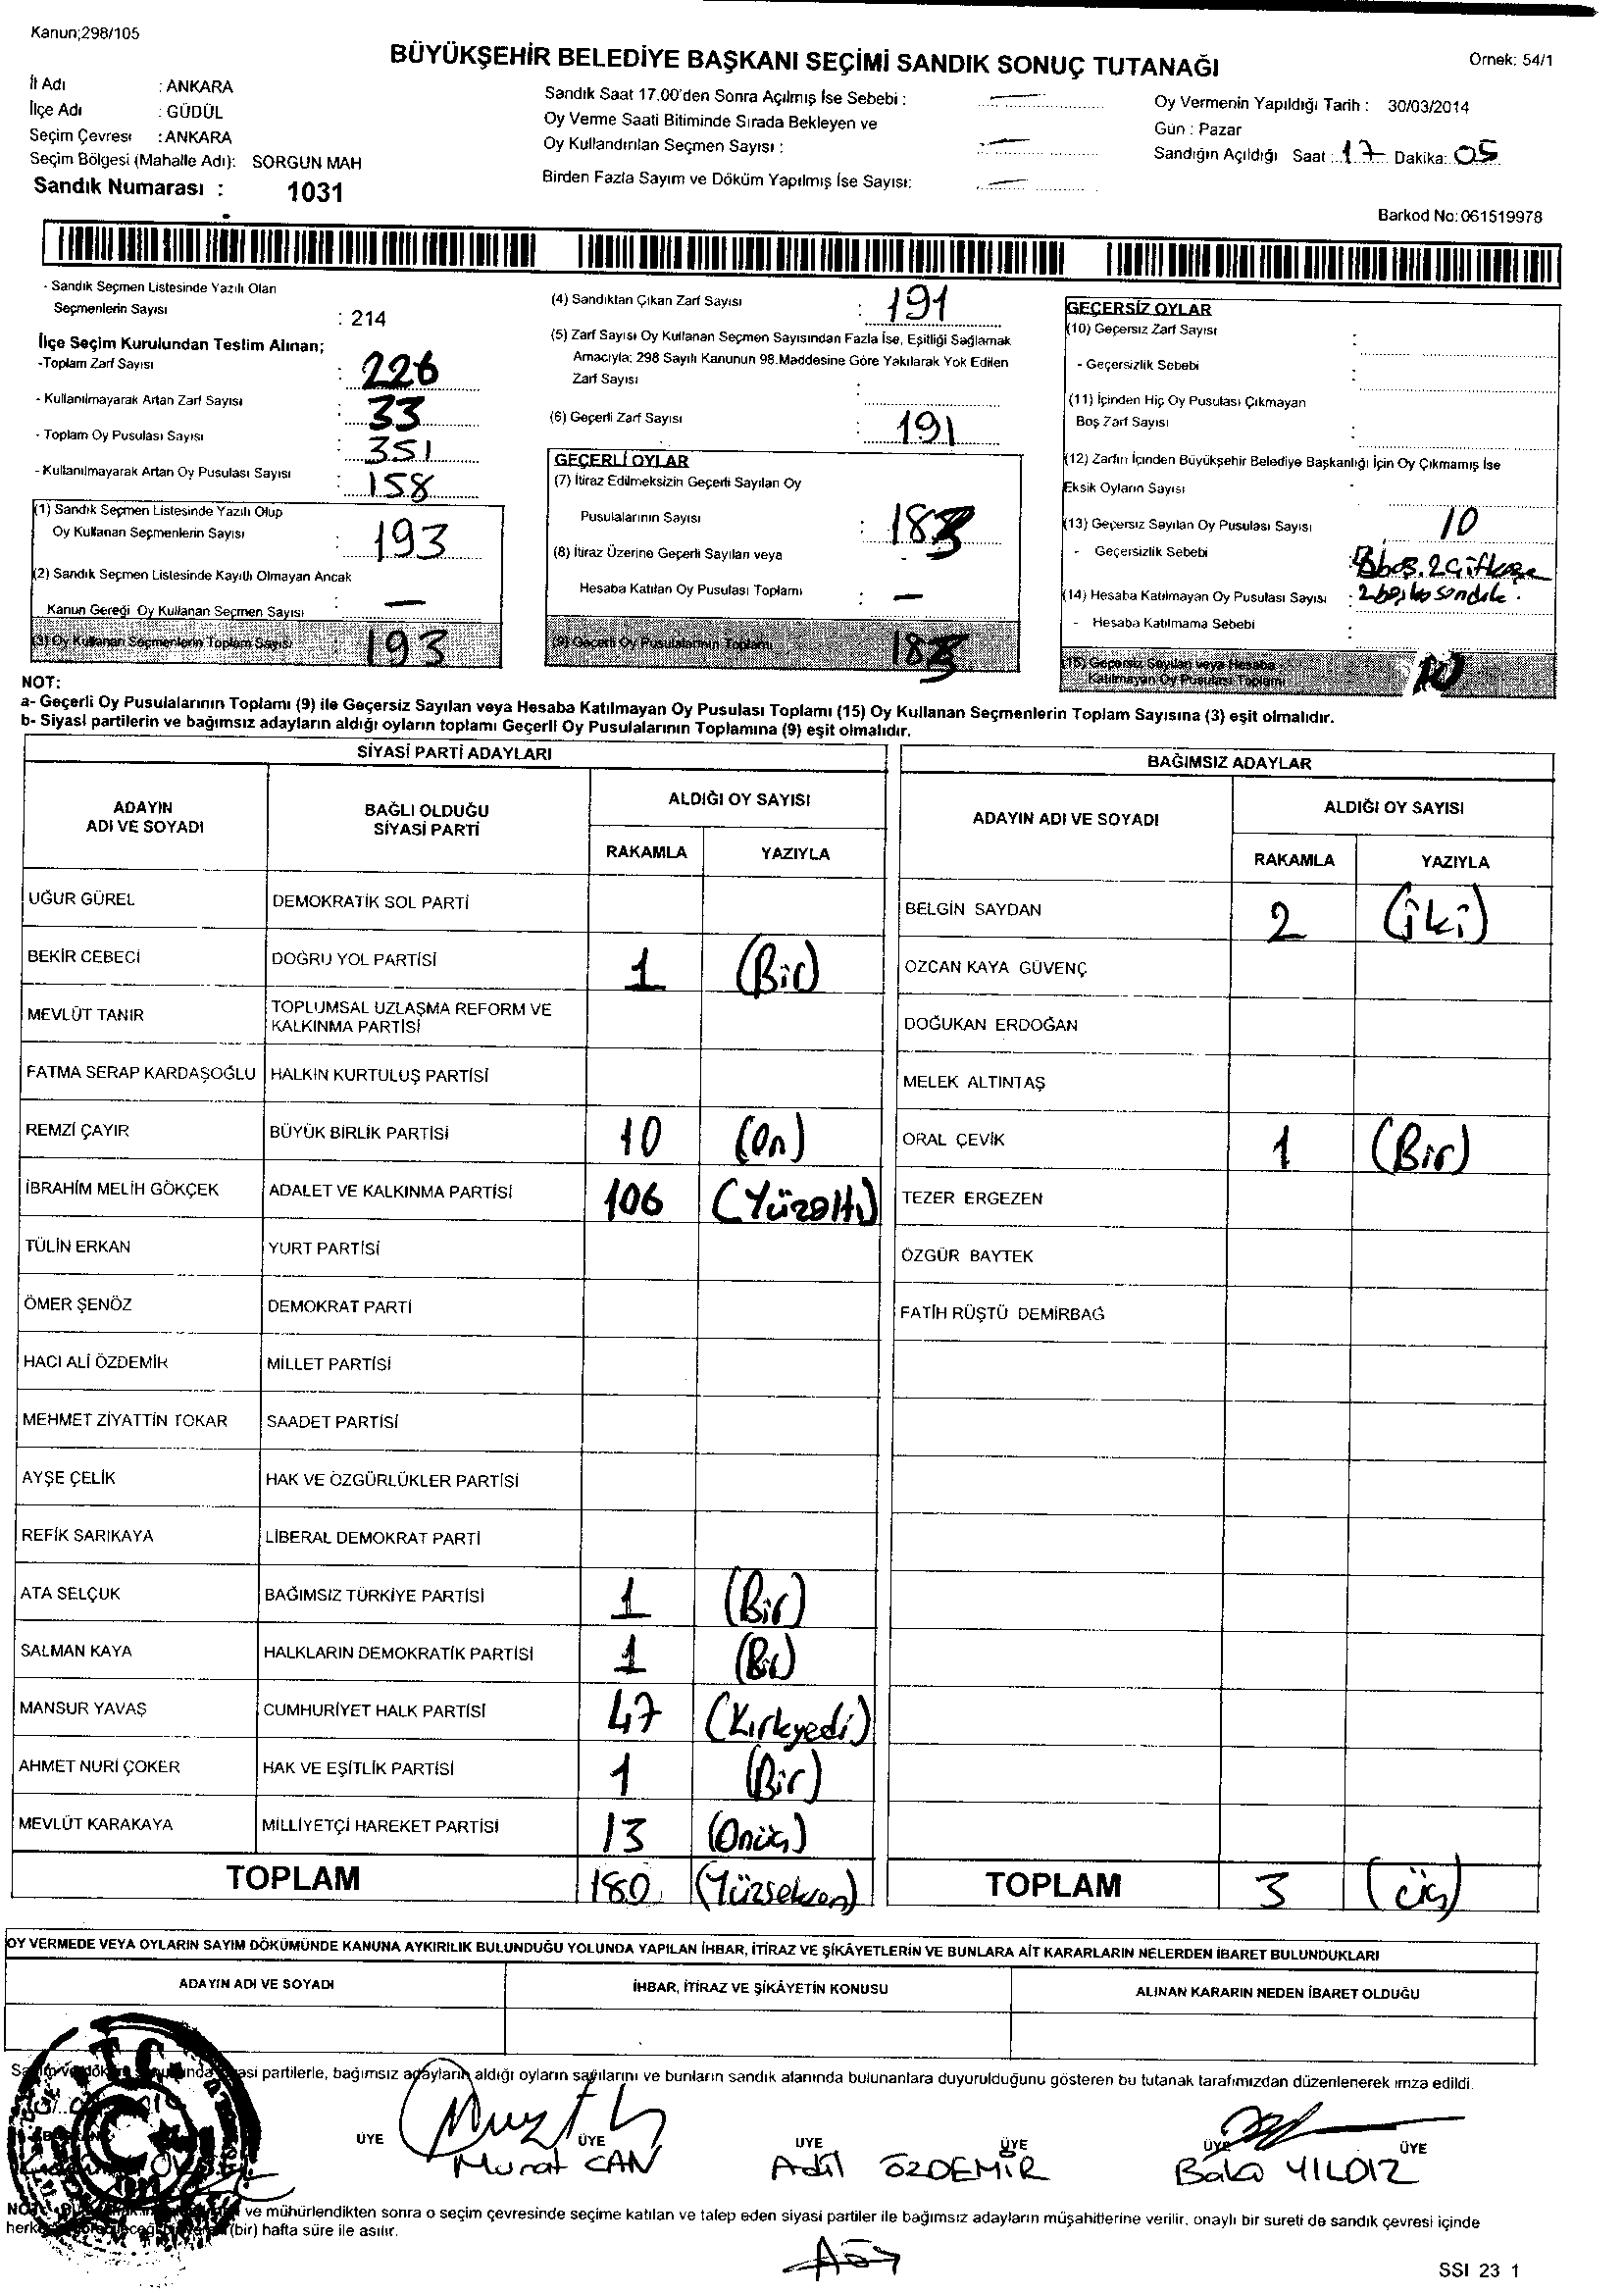 Kanun;298/105
BÜYÜKŞEHİR BELEDİYE BAŞKANI SEÇİMİ SANDIK SONUÇ TUTANAĞI
Örnek: 54/1
İl Adı : ANKARA
İlçe Adı : GÜDÜL
Seçim Çevresi : ANKARA
Seçim Bölgesi (Mahalle Adı): SORGUN MAH
Sandık Numarası : 1031
Sandık Saat 17.00'den Sonra Açılmış İse Sebebi :
Oy Verme Saati Bitiminde Sırada Bekleyen ve
Oy Kullandırılan Seçmen Sayısı :
Birden Fazla Sayım ve Döküm Yapılmış İse Sayısı:
Oy Vermenin Yapıldığı Tarih : 30/03/2014
Gün : Pazar
Sandığın Açıldığı Saat : 17 Dakika: 05
Barkod No: 061519978
- Sandık Seçmen Listesinde Yazılı Olan
Seçmenlerin Sayısı : 214
İlçe Seçim Kurulundan Teslim Alınan;
-Toplam Zarf Sayısı : 226
- Kullanılmayarak Artan Zarf Sayısı : 33
- Toplam Oy Pusulası Sayısı : 351
- Kullanılmayarak Artan Oy Pusulası Sayısı : 158
(1) Sandık Seçmen Listesinde Yazılı Olup
Oy Kullanan Seçmenlerin Sayısı : 193
(2) Sandık Seçmen Listesinde Kayıtlı Olmayan Ancak
Kanun Gereği Oy Kullanan Seçmen Sayısı : —
(3) Oy Kullanan Seçmenlerin Toplam Sayısı 193
(4) Sandıktan Çıkan Zarf Sayısı : 191
(5) Zarf Sayısı Oy Kullanan Seçmen Sayısından Fazla İse, Eşitliği Sağlamak
Amacıyla; 298 Sayılı Kanunun 98.Maddesine Göre Yakılarak Yok Edilen
Zarf Sayısı :
(6) Geçerli Zarf Sayısı : 191
GEÇERLİ OYLAR
(7) İtiraz Edilmeksizin Geçerli Sayılan Oy
Pusulalarının Sayısı : 183
(8) İtiraz Üzerine Geçerli Sayılan veya
Hesaba Katılan Oy Pusulası Toplamı : —
(9) Geçerli Oy Pusulalarının Toplamı 183
GEÇERSİZ OYLAR
(10) Geçersiz Zarf Sayısı :
- Geçersizlik Sebebi :
(11) İçinden Hiç Oy Pusulası Çıkmayan
Boş Zarf Sayısı :
(12) Zarfın İçinden Büyükşehir Belediye Başkanlığı İçin Oy Çıkmamış İse
Eksik Oyların Sayısı :
(13) Geçersiz Sayılan Oy Pusulası Sayısı 10
- Geçersizlik Sebebi
(14) Hesaba Katılmayan Oy Pusulası Sayısı :
- Hesaba Katılmama Sebebi :
(15) Geçersiz Sayılan veya Hesaba
Katılmayan Oy Pusulası Toplamı 10
NOT:
a- Geçerli Oy Pusulalarının Toplamı (9) ile Geçersiz Sayılan veya Hesaba Katılmayan Oy Pusulası Toplamı (15) Oy Kullanan Seçmenlerin Toplam Sayısına (3) eşit olmalıdır.
b- Siyasi partilerin ve bağımsız adayların aldığı oyların toplamı Geçerli Oy Pusulalarının Toplamına (9) eşit olmalıdır.
SİYASİ PARTİ ADAYLARI
ADAYIN ADI VE SOYADI
BAĞLI OLDUĞU SİYASİ PARTİ
ALDIĞI OY SAYISI
RAKAMLA YAZIYLA
UĞUR GÜREL DEMOKRATİK SOL PARTİ
BEKİR CEBECİ DOĞRU YOL PARTİSİ 1 (Bir)
MEVLÜT TANIR TOPLUMSAL UZLAŞMA REFORM VE
KALKINMA PARTİSİ
FATMA SERAP KARDAŞOĞLU HALKIN KURTULUŞ PARTİSİ
REMZİ ÇAYIR BÜYÜK BİRLİK PARTİSİ 10 (On)
İBRAHİM MELİH GÖKÇEK ADALET VE KALKINMA PARTİSİ 106 (Yüzaltı)
TÜLİN ERKAN YURT PARTİSİ
ÖMER ŞENÖZ DEMOKRAT PARTİ
HACI ALİ ÖZDEMİR MİLLET PARTİSİ
MEHMET ZİYATTİN TOKAR SAADET PARTİSİ
AYŞE ÇELİK HAK VE ÖZGÜRLÜKLER PARTİSİ
REFİK SARIKAYA LİBERAL DEMOKRAT PARTİ
ATA SELÇUK BAĞIMSIZ TÜRKİYE PARTİSİ 1 (Bir)
SALMAN KAYA HALKLARIN DEMOKRATİK PARTİSİ 1 (Bir)
MANSUR YAVAŞ CUMHURİYET HALK PARTİSİ 47 (Kırkyedi)
AHMET NURİ ÇOKER HAK VE EŞİTLİK PARTİSİ 1 (Bir)
MEVLÜT KARAKAYA MİLLİYETÇİ HAREKET PARTİSİ 13 (Onüç)
TOPLAM 180 (Yüzseksen)
BAĞIMSIZ ADAYLAR
ADAYIN ADI VE SOYADI
ALDIĞI OY SAYISI
RAKAMLA YAZIYLA
BELGİN SAYDAN 2 (İki)
ÖZCAN KAYA GÜVENÇ
DOĞUKAN ERDOĞAN
MELEK ALTINTAŞ
ORAL ÇEVİK 1 (Bir)
TEZER ERGEZEN
ÖZGÜR BAYTEK
FATİH RÜŞTÜ DEMİRBAĞ
TOPLAM 3 (üç)
OY VERMEDE VEYA OYLARIN SAYIM DÖKÜMÜNDE KANUNA AYKIRILIK BULUNDUĞU YOLUNDA YAPILAN İHBAR, İTİRAZ VE ŞİKÂYETLERİN VE BUNLARA AİT KARARLARIN NELERDEN İBARET BULUNDUKLARI
ADAYIN ADI VE SOYADI
İHBAR, İTİRAZ VE ŞİKÂYETİN KONUSU
ALINAN KARARIN NEDEN İBARET OLDUĞU
partilerle, bağımsız adayların aldığı oyların sayılarını ve bunların sandık alanında bulunanlara duyurulduğunu gösteren bu tutanak tarafımızdan düzenlenerek imza edildi.
ÜYE ÜYE ÜYE ÜYE ÜYE ÜYE
Murat CAN Adil ÖZDEMİR Baki YILDIZ
ve mühürlendikten sonra o seçim çevresinde seçime katılan ve talep eden siyasi partiler ile bağımsız adayların müşahitlerine verilir, onaylı bir sureti de sandık çevresi içinde
(bir) hafta süre ile asılır.
SSI 23 1